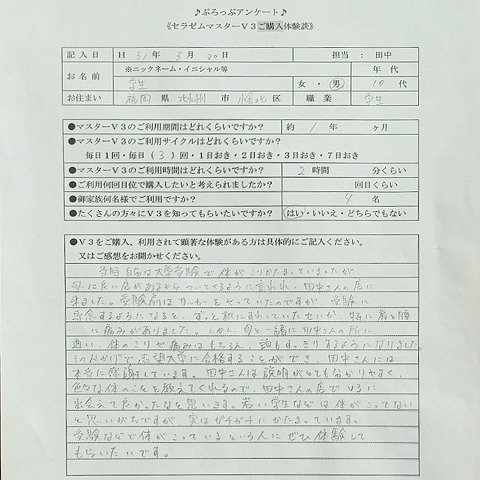 ♪ぷろっぷアンケート♪
《セラゼムマスターV3ご購入体験談》
記入日 H 31年 3月 20日 担当：田中
お名前 ※ニックネーム・イニシャル等 学生 女・男 年代 10代
お住まい 福岡県 北九州市 小倉北区 職業 学生
●マスターV3のご利用期間はどれくらいですか？ 約 1年 ヶ月
●マスターV3のご利用サイクルはどれくらいですか？
毎日1回・毎日(3)回・1日おき・2日おき・3日おき・7日おき
●マスターV3のご利用時間はどれくらいですか？ 2時間 分くらい
●ご利用何回目位で購入したいと考えられましたか？ 回目くらい
●御家族何名様でご利用ですか？ 4名
●たくさんの方々にV3を知ってもらいたいですか？ はい・いいえ・どちらでもない
●V3をご購入、利用されて顕著な体験がある方は具体的にご記入ください。
又はご感想をお聞かせください。
当時自分は大学受験で体がこりかたまっていましたが、
母に良い店があるからついてくるように言われ、田中さんの店に
来ました。受験前はサッカーをやっていたのですが、受験に
専念するようになると、ずっと机にすわっていたせいか、特に肩と腰
に痛みがありました。しかし、母と一緒に田中さんの所に
通い、体のこりや痛みはもちろん、頭もすっきりするようになりました。
そのおかげで志望大学に合格することができ、田中さんには
本当に感謝しています。田中さんは説明がとても分かりやすく、
色々な体のことを教えてくれるので、田中さんの店でV3に
出会えてよかったなと思います。若い学生などは体がこってない
と思いがちですが実はガチガチにかたまっています。
受験などで体がこっているという人にぜひ体験して
もらいたいです。